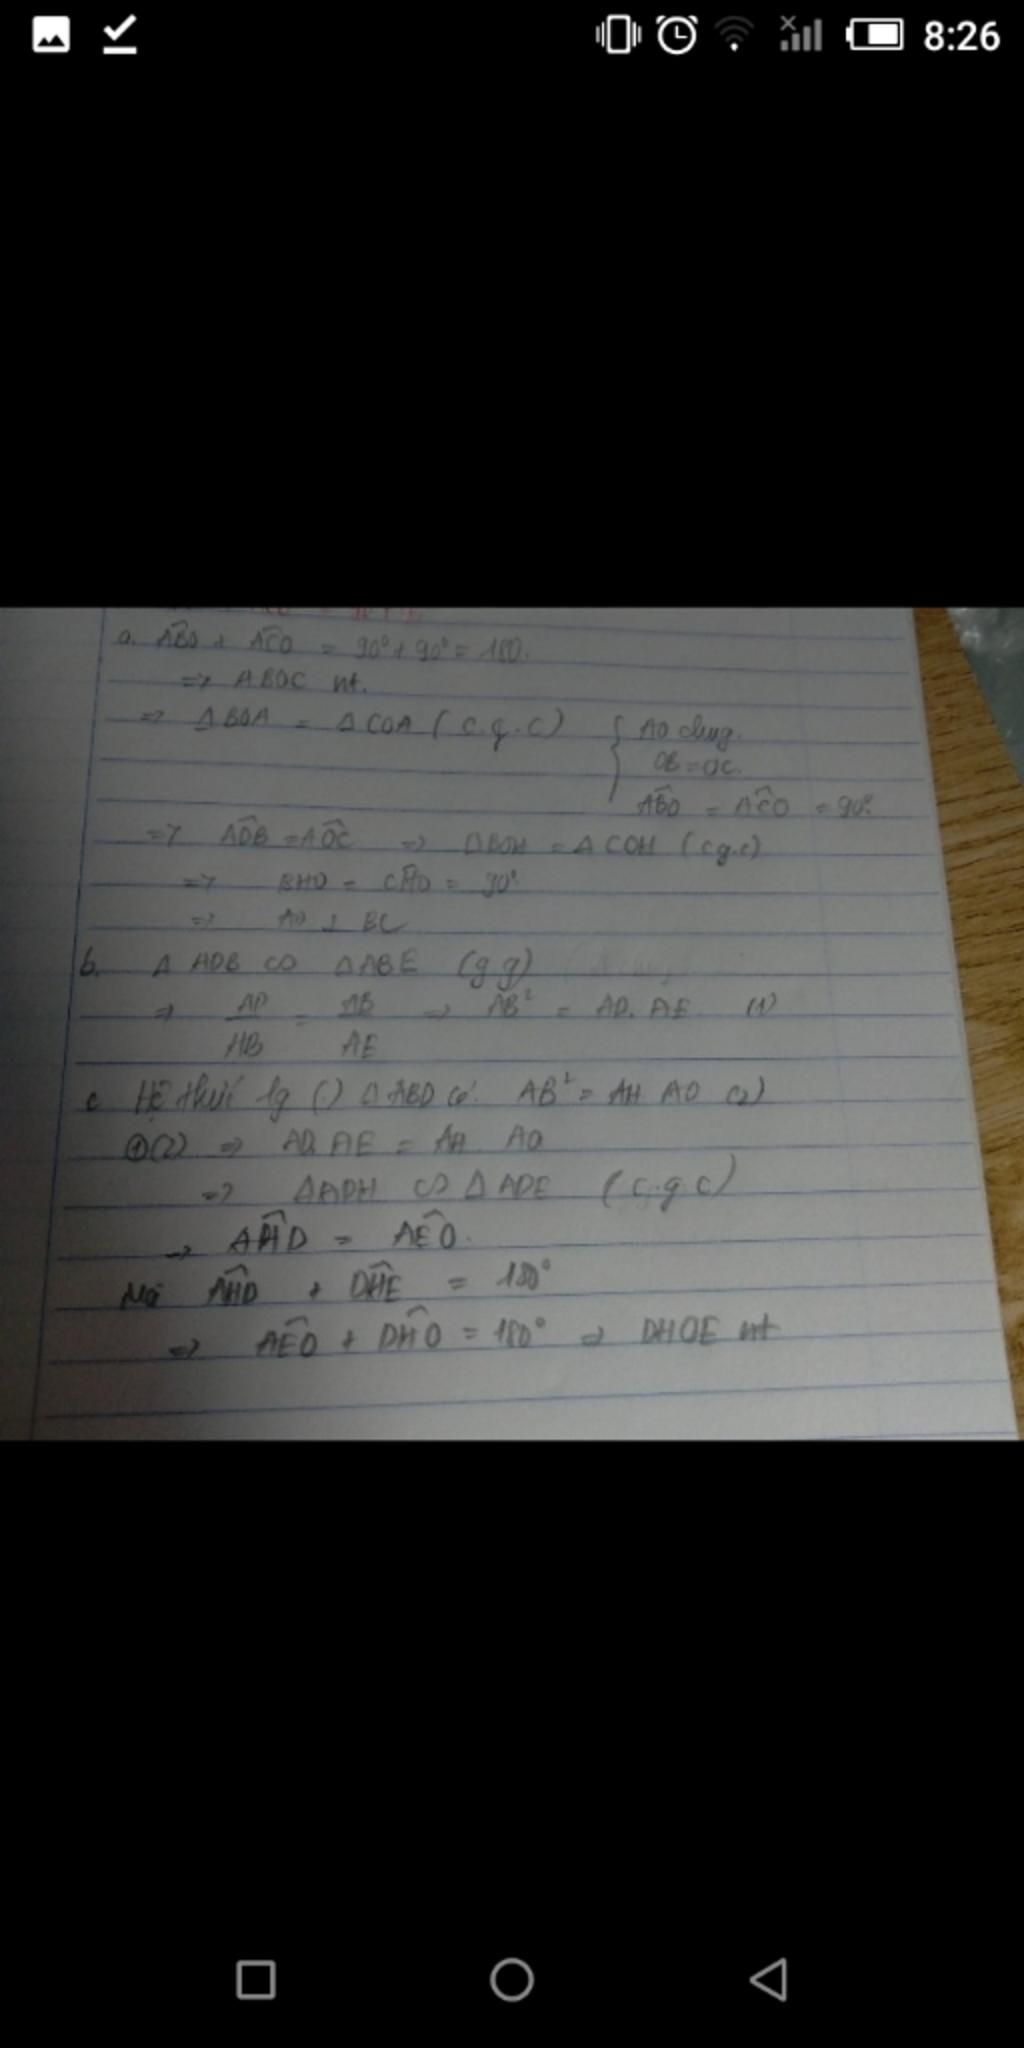 8:26
a. ABO + ACO = 90° + 90° = 180.
=> ABOC nt.
=> Δ BOA = Δ COA ( c.g.c) { AO chung.
OB = OC.
ABO = ACO = 90°.
=> AOB = AOC => Δ BOH = Δ COH ( cg.c)
=> BHO = CHO = 90°
=> AO ⊥ BC
b. Δ ADB ∽ Δ ABE (g g)
=> AD = AB => AB² = AD. AE (1)
AB AE
c Hệ thức lg () Δ ABO có: AB² = AH AO (2)
(2) => AD. AE = AH . AO
=> Δ ADH ∽ Δ ( c.g c)
=> AHD = AEO.
Mà AHD + = 180°
=> AEO + DHO = 180° => DHOE nt